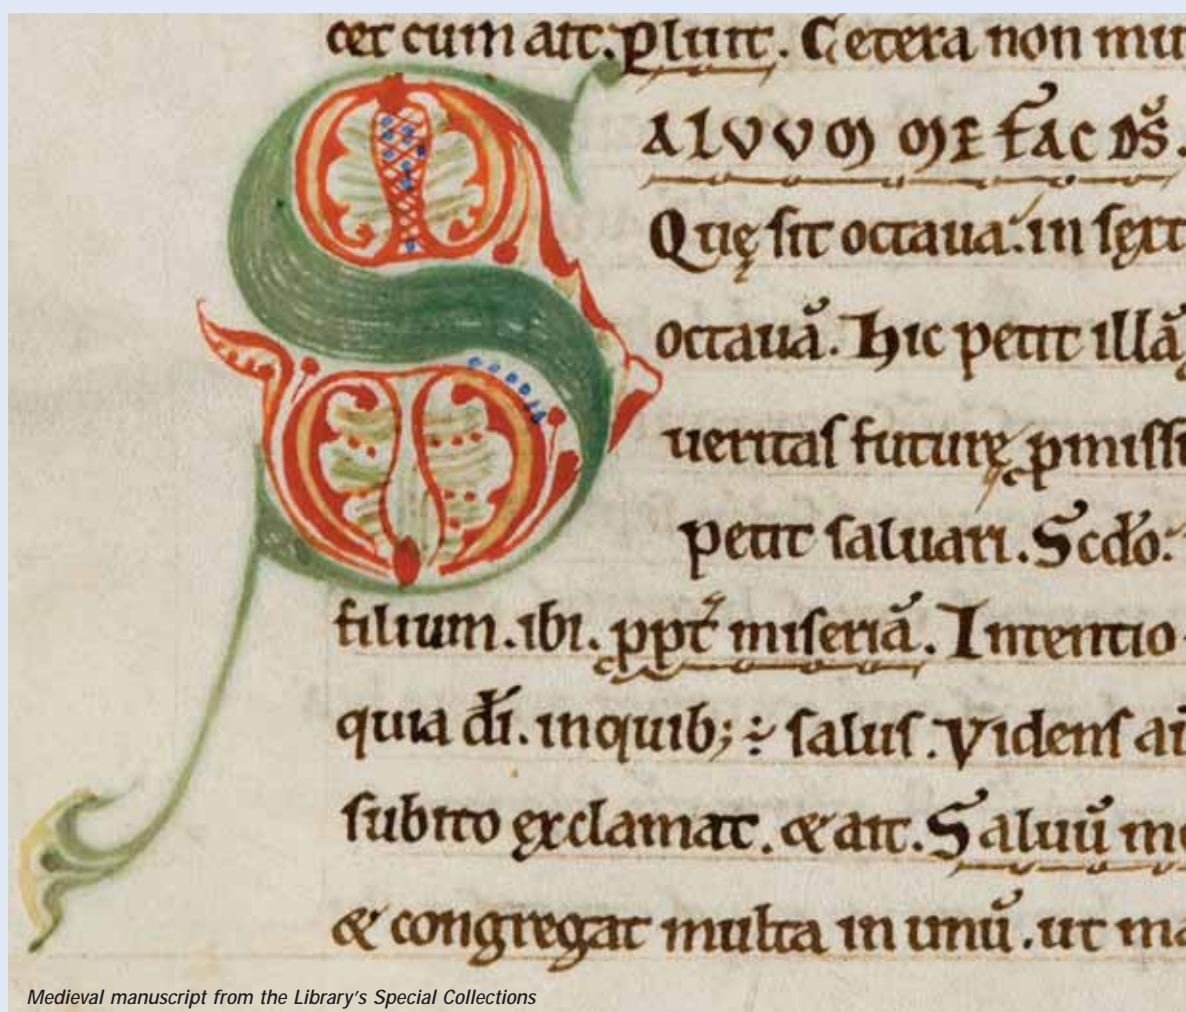 cet cum ait. Pluit. Cetera non mu
S ALVVM ME FAC DS̄.
Quę sit octaua. in sext
octauā. Hic petit illā
ueritas futurę pmissi
petit saluari. Scdo.
filium. ibi. ppt̄ miseriā. Intentio
quia dī. inquib; ÷ salus. Videns ai
subito exclamat. & ait. Saluū me
& congregat multa in unū. ut ma
Medieval manuscript from the Library's Special Collections